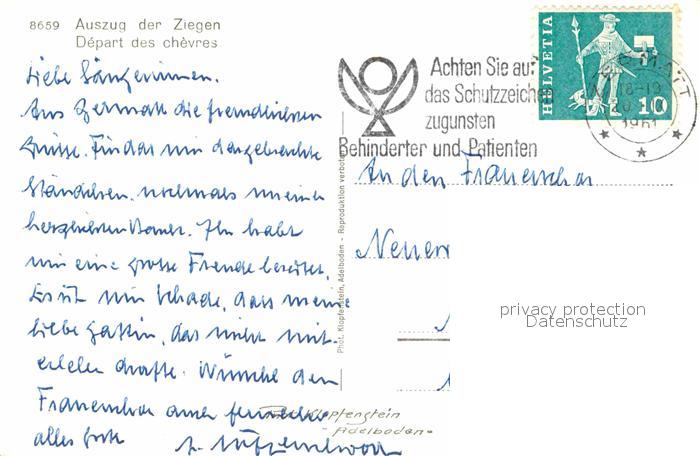 8659 Auszug der Ziegen
Départ des chèvres
Liebe Sängerinnen.
Aus Zermatt die freundlichen
Grüsse. Für das mir dargebrachte
Ständchen, nochmals meinen
herzlichsten Dank. Ihr habt
mir eine grosse Freude bereitet.
Es ist nur Schade, dass meine
liebe Gattin, das nicht mit-
erleben durfte. Wünsche dem
Frauenchor auch fernerhin
alles Gute
HELVETIA
10
ZERMATT
18-19
1961
Achten Sie auf
das Schutzzeichen
zugunsten
Behinderter und Patienten
An den Frauenchor
Phot. Klopfenstein, Adelboden - Reproduktion verboten
Klopfenstein
- Adelboden -
privacy protection
Datenschutz